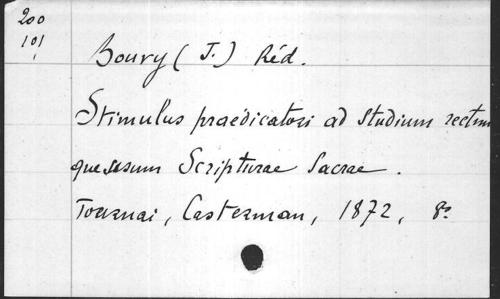 200
101
1
Boury (J.) Réd.
Stimulus praedicatori ad studium rectum
que usum Scripturae Sacrae.
Tournai, Casterman, 1872, 8º